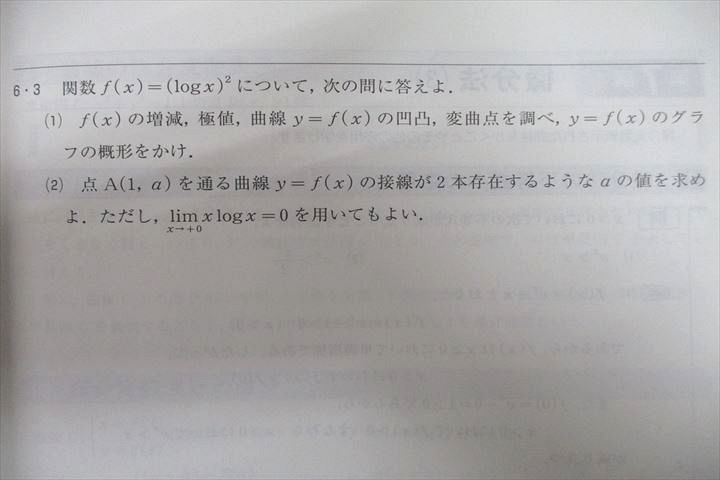 6・3 関数 f(x)=(log x)² について，次の問に答えよ．
(1) f(x) の増減，極値，曲線 y=f(x) の凹凸，変曲点を調べ，y=f(x) のグラ
フの概形をかけ．
(2) 点 A(1, a) を通る曲線 y=f(x) の接線が 2 本存在するような a の値を求め
よ．ただし，lim x log x=0 を用いてもよい．
x→+0